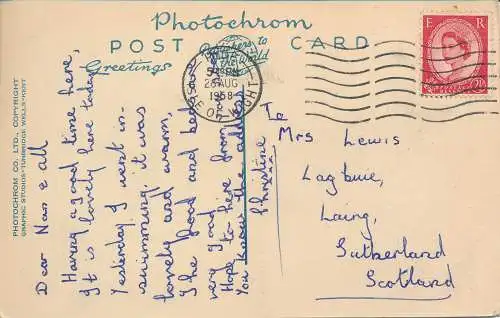 Photochrom
POST CARD
Publishers to
the World
Greetings
E R
5 PM
26 AUG
1958
ISLE OF WIGHT
PHOTOCHROM CO. LTD., COPYRIGHT
GRAPHIC STUDIOS-TUNBRIDGE WELLS-KENT
Dear Nan & all
Having a good time here,
It is lovely here today
Yesterday I went in
swimming, it was
lovely and warm,
The food and beds are
very good
Hope to hear from you
You know the address
Christine
xxxx
To
Mrs Lewis
Lagbuie,
Lairg,
Sutherland
Scotland